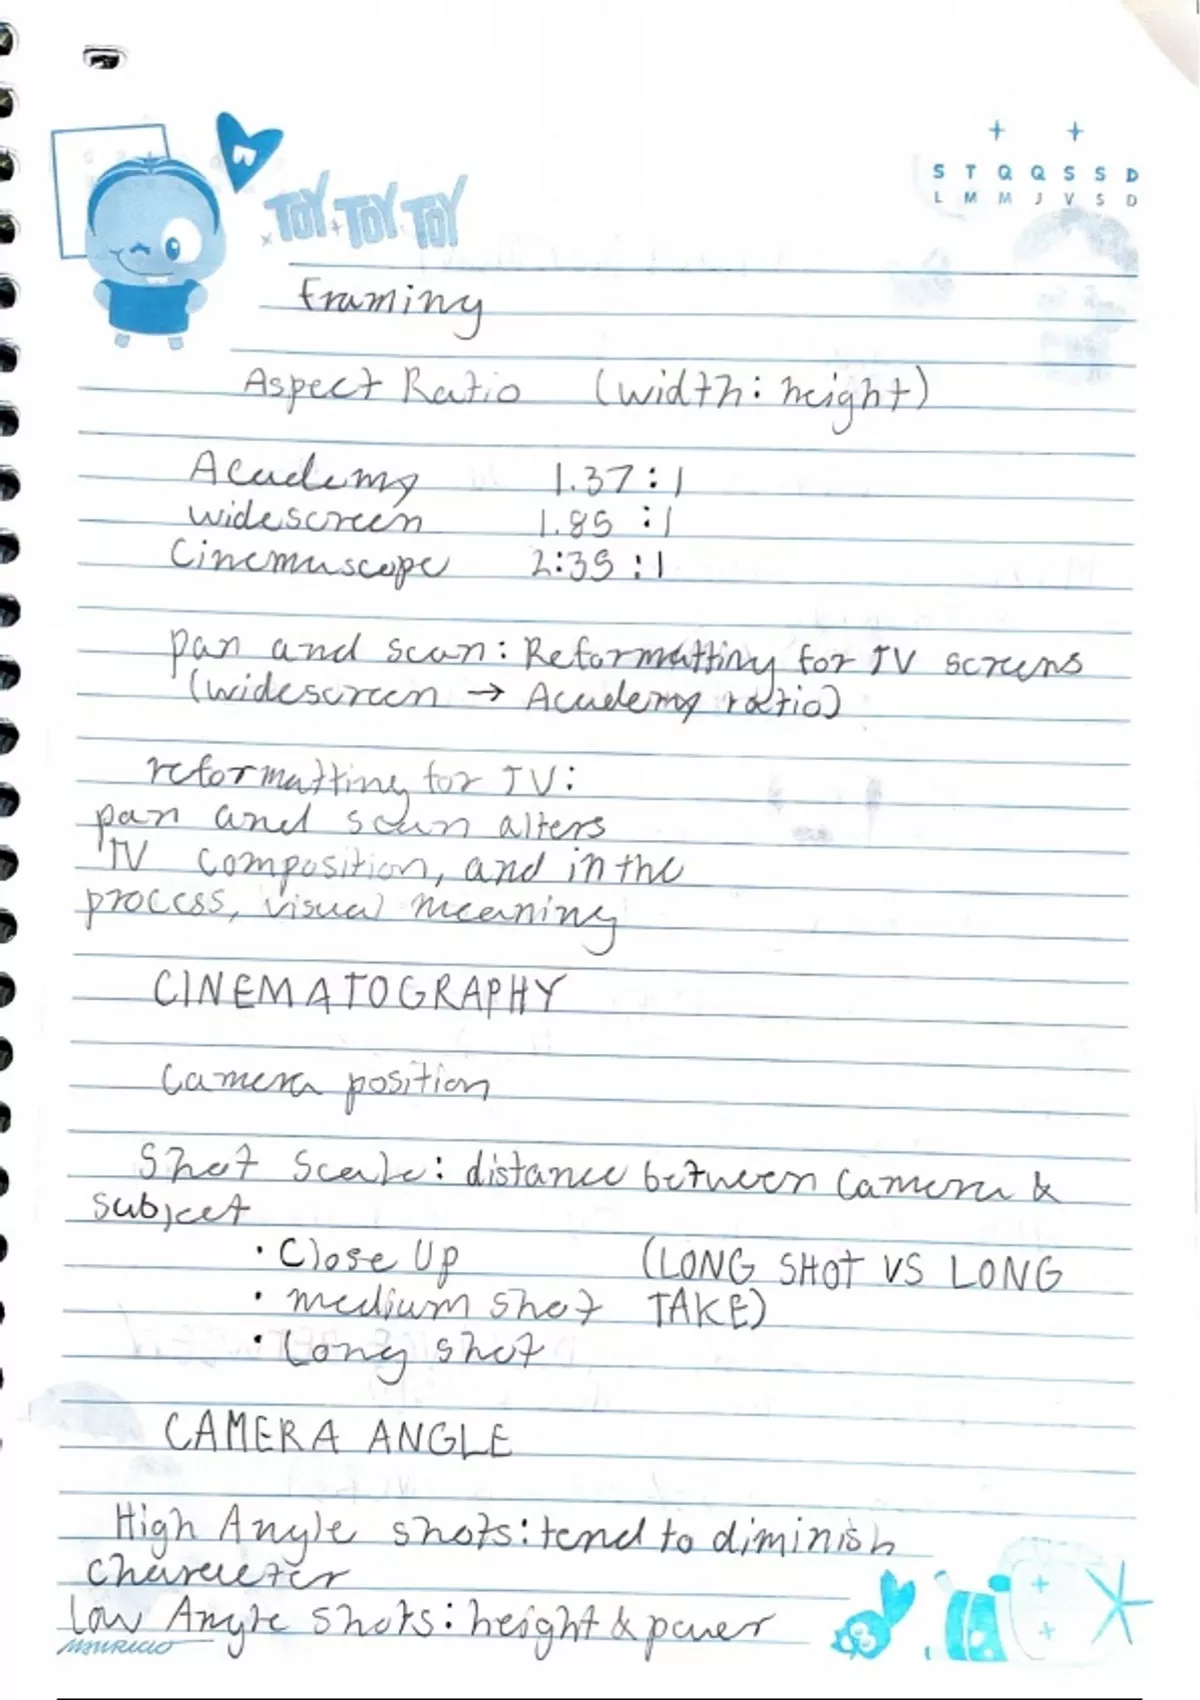 TOY TOY TOY
S T Q Q S S D
L M M J V S D
Framing
Aspect Ratio (width: height)
Academy 1.37:1
widescreen 1.85 :1
Cinemascope 2:35 :1
pan and scan: Reformatting for TV screens
(widescreen → Academy ratio)
reformatting for TV:
pan and scan alters
TV composition, and in the
process, visual meaning
CINEMATOGRAPHY
Camera position
Shot Scale: distance between Camera &
subject
• Close Up (LONG SHOT VS LONG
• medium shot TAKE)
• Long shot
CAMERA ANGLE
High Angle shots: tend to diminish
character
Low Angle shots: height & power
MAURICIO